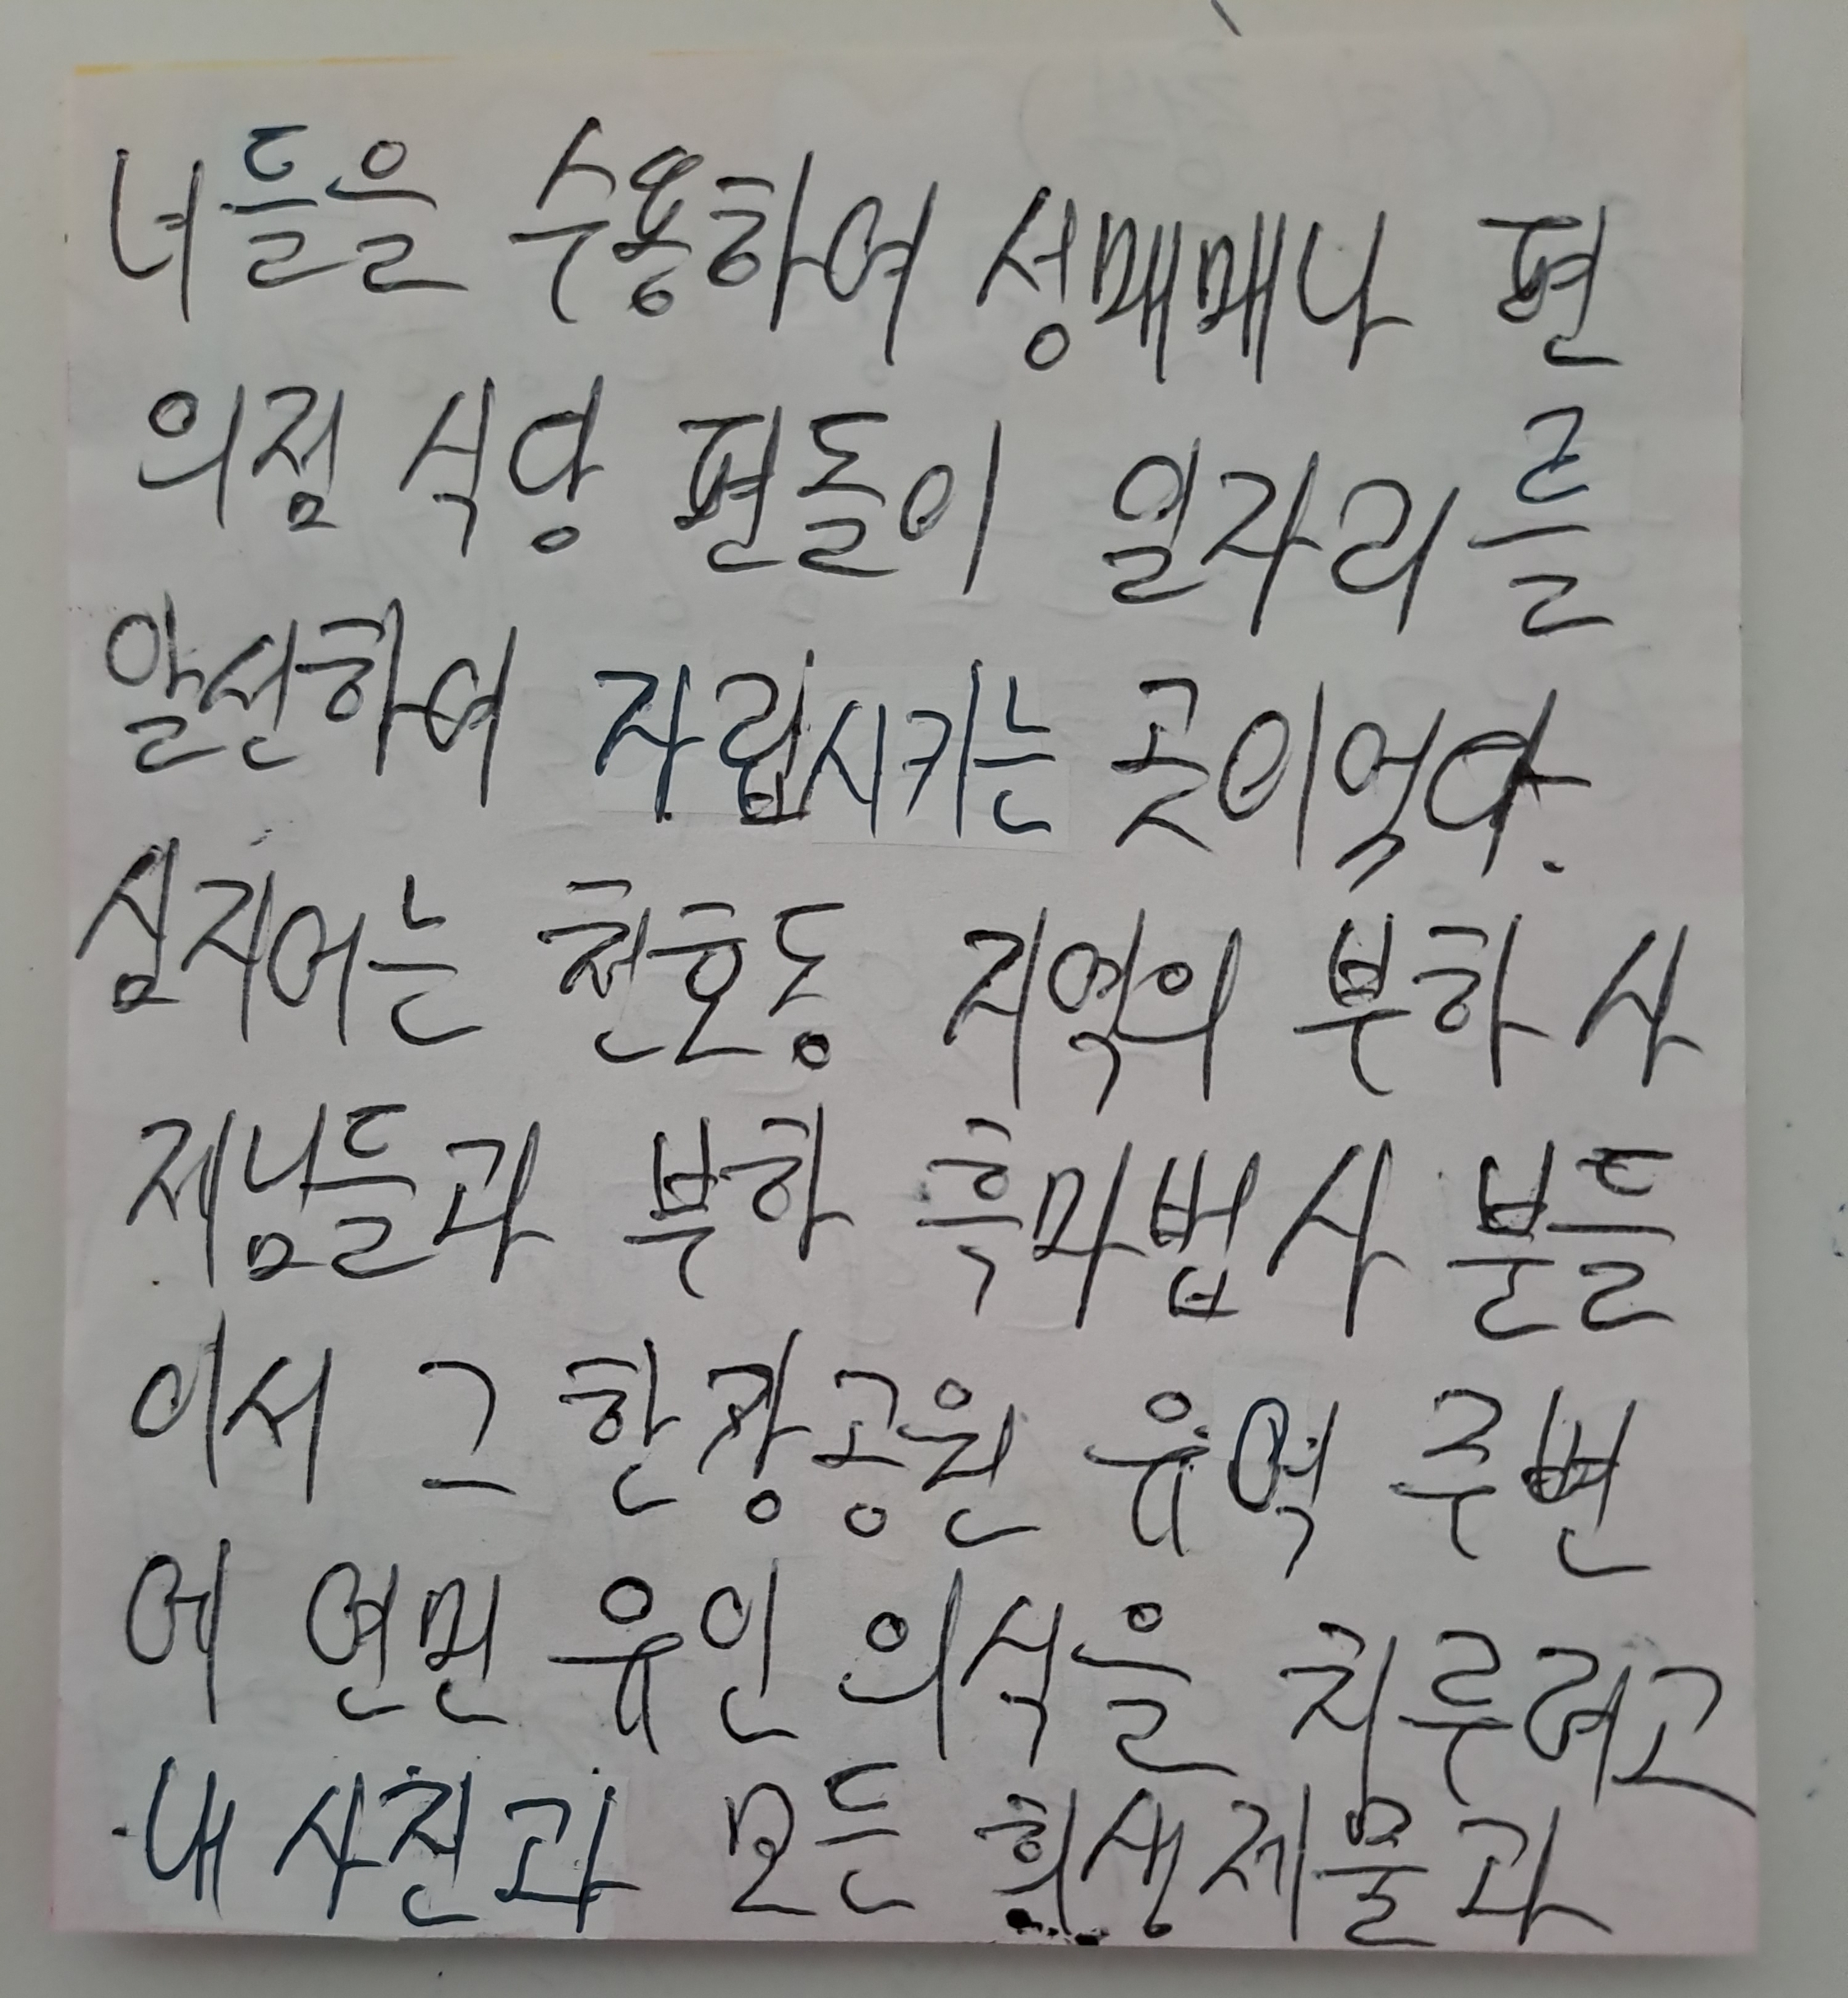 너들을 수용하여 성매매나 편
의점 식당 편돌이 일자리를
알선하여 자립시키는 곳이었다.
심지어는 천호동 지역의 부하 사
제님들과 부하 흑마법사 분들
이서 그 한강공원 유역 주변
에 연면 유인 의식을 치루려고
내 사진과 모든 희생제물과